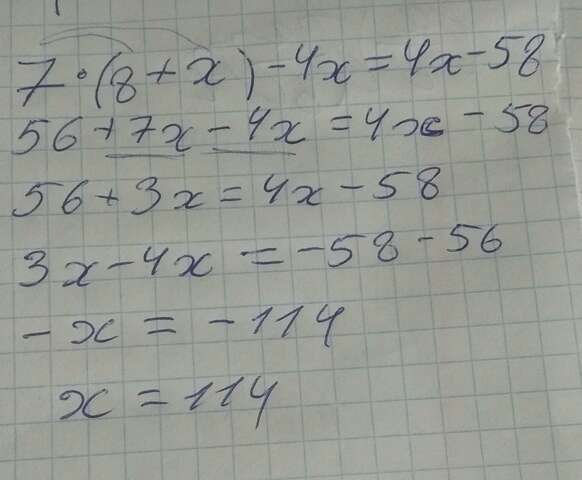 7·(8+x)-4x=4x-58
56+7x-4x=4x-58
56+3x=4x-58
3x-4x=-58-56
-x=-114
x=114